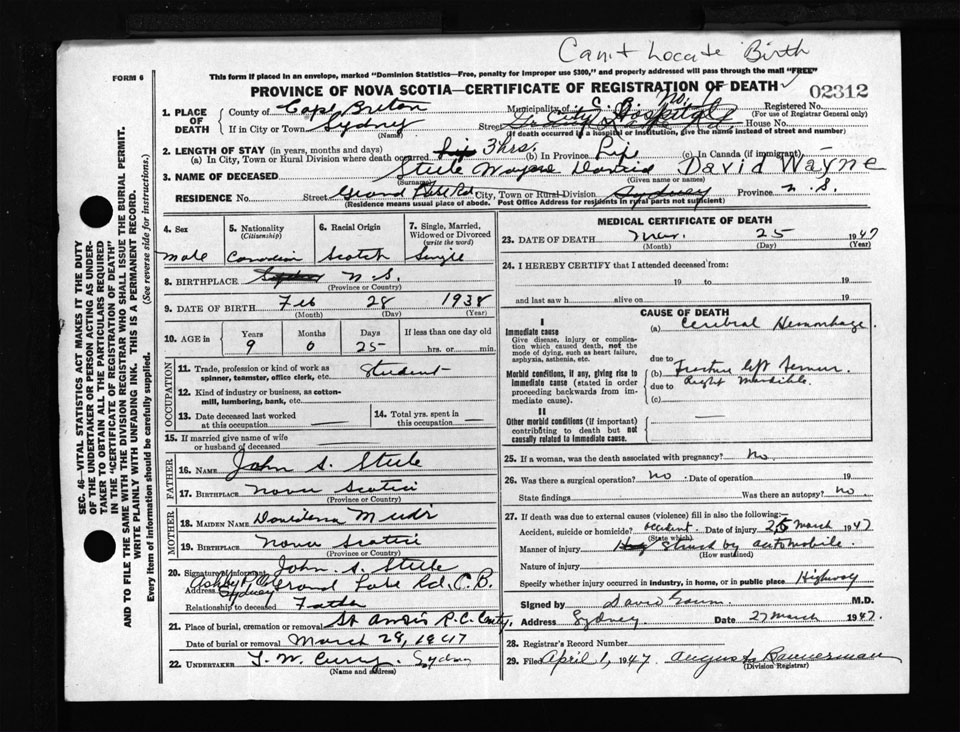 Can't Locate Birth
FORM 6
This form if placed in an envelope, marked "Dominion Statistics—Free, penalty for improper use $300," and properly addressed will pass through the mail "FREE"
PROVINCE OF NOVA SCOTIA—CERTIFICATE OF REGISTRATION OF DEATH
02312
1. PLACE OF DEATH
County of Cape Breton
Municipality of C. B.
Registered No.
(For use of Registrar General only)
If in City or Town Sydney
(Name)
Street City Hospital
House No.
(If death occurred in a hospital or institution, give the name instead of street and number)
2. LENGTH OF STAY (in years, months and days)
(a) In City, Town or Rural Division where death occurred 3 hrs. (b) In Province Life (c) In Canada (if immigrant)
3. NAME OF DECEASED Steele Wayne David David Wayne
(Surname) (Given name or names)
RESIDENCE No. Street Grand Lake Rd. City, Town or Rural Division Sydney Province N. S.
(Residence means usual place of abode. Post Office Address for residents in rural parts not sufficient)
4. Sex
male
5. Nationality
(Citizenship)
Canadian
6. Racial Origin
Scotch
7. Single, Married, Widowed or Divorced
(write the word)
Single
8. BIRTHPLACE N. S.
(Province or Country)
9. DATE OF BIRTH Feb 28 1938
(Month) (Day) (Year)
10. AGE in Years Months Days If less than one day old
9 0 25 hrs. or min.
OCCUPATION
11. Trade, profession or kind of work as spinner, teamster, office clerk, etc. Student
12. Kind of industry or business, as cotton-mill, lumbering, bank, etc.
13. Date deceased last worked at this occupation
14. Total yrs. spent in this occupation
15. If married give name of wife or husband of deceased
FATHER
16. NAME John A. Steele
17. BIRTHPLACE Nova Scotia
(Province or Country)
MOTHER
18. MAIDEN NAME Muir
19. BIRTHPLACE Nova Scotia
(Province or Country)
20. Signature of informant John A. Steele
Address Grand Lake Rd, C.B.
Sydney
Relationship to deceased Father
21. Place of burial, cremation or removal R.C. Cemty.
Date of burial or removal March 28, 1947
22. UNDERTAKER T. W. Curry, Sydney
(Name and address)
MEDICAL CERTIFICATE OF DEATH
23. DATE OF DEATH Mar. 25 1947
(Month) (Day) (Year)
24. I HEREBY CERTIFY that I attended deceased from:
19 to 19
and last saw h alive on 19
CAUSE OF DEATH
I
Immediate cause
Give disease, injury or complication which caused death, not the mode of dying, such as heart failure, asphyxia, asthenia, etc.
(a) Cerebral Hemorrhage.
due to
Morbid conditions, if any, giving rise to immediate cause (stated in order proceeding backwards from immediate cause).
(b) Fracture left femur
due to Right Mandible.
(c)
II
Other morbid conditions (if important) contributing to death but not causally related to immediate cause.
25. If a woman, was the death associated with pregnancy? No.
26. Was there a surgical operation? No. Date of operation 19
State findings Was there an autopsy? No.
27. If death was due to external causes (violence) fill in also the following:
Accident, suicide or homicide? Accident. Date of injury 25 March 1947
(State which)
Manner of injury Struck by automobile.
(How sustained)
Nature of injury
Specify whether injury occurred in industry, in home, or in public place Highway
Signed by David Gaum M.D.
Address Sydney. Date 27 March 1947.
28. Registrar's Record Number
29. Filed April 1, 1947 Augusta Bannerman
(Division Registrar)
SEC. 46—VITAL STATISTICS ACT MAKES IT THE DUTY OF THE UNDERTAKER OR PERSON ACTING AS UNDERTAKER TO OBTAIN ALL THE PARTICULARS REQUIRED IN THE "CERTIFICATE OF REGISTRATION OF DEATH" AND TO FILE THE SAME WITH THE DIVISION REGISTRAR WHO SHALL ISSUE THE BURIAL PERMIT.
WRITE PLAINLY WITH UNFADING INK. THIS IS A PERMANENT RECORD.
Every item of information should be carefully supplied. (See reverse side for instructions.)